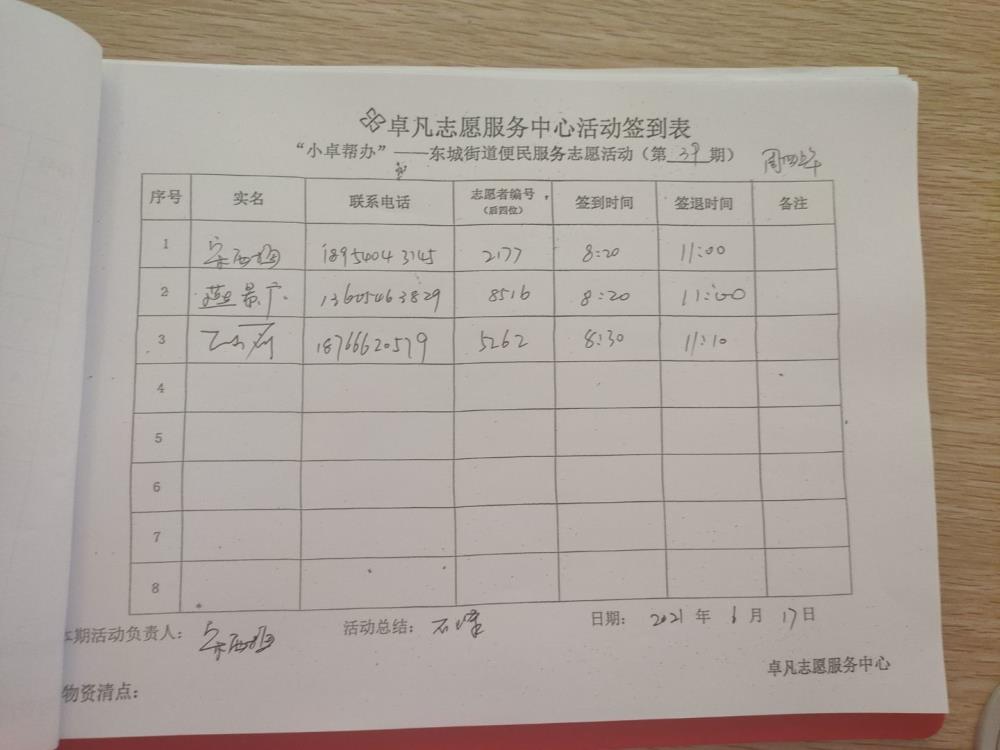 卓凡志愿服务中心活动签到表
“小卓帮办”——东城街道便民服务志愿活动（第 39 期） 周四上午
序号 实名 联系电话 志愿者编号（后四位） 签到时间 签退时间 备注
1 宋西梅 18954043145 2177 8:20 11:00
2 燕景广 13605463829 8516 8:20 11:00
3 18766620579 5262 8:30 11:10
4
5
6
7
8
本期活动负责人： 宋西梅 活动总结： 日期： 2021 年 6 月 17 日
卓凡志愿服务中心
物资清点：